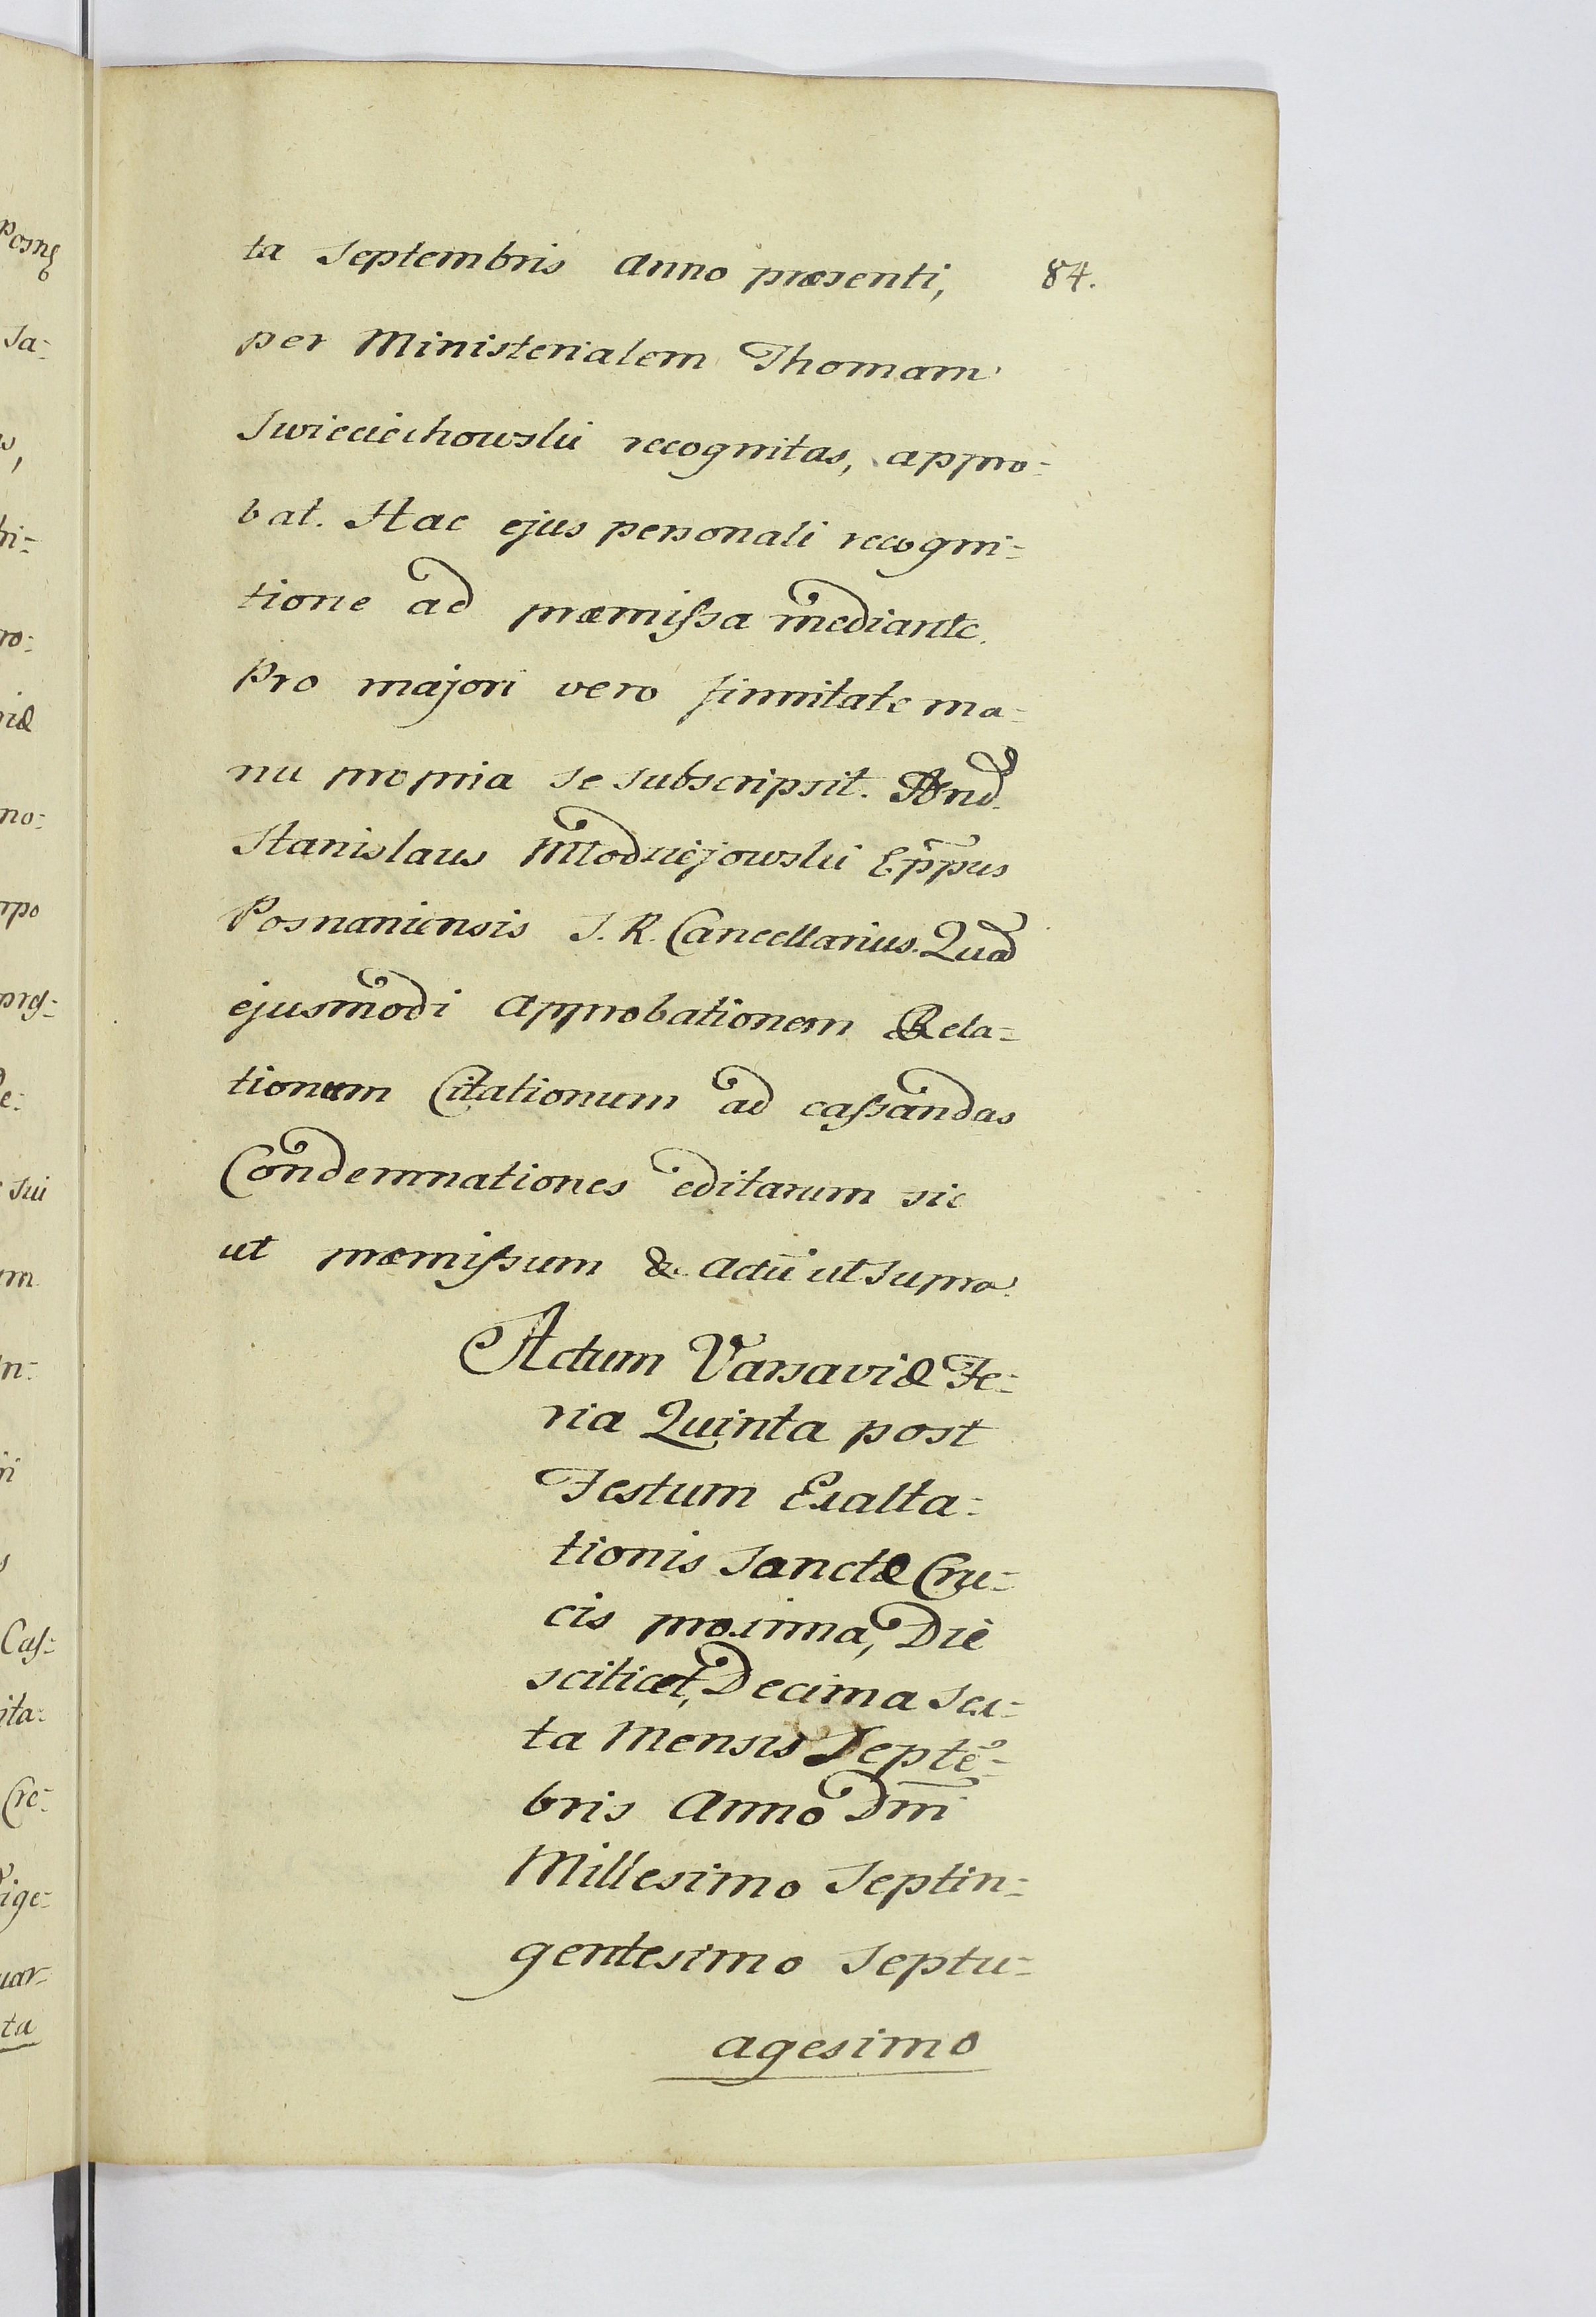 84.
ta Septembris Anno præsenti,
per Ministerialem Thomam
Swieciechowski recognitas, appro=
bat. Hac ejus personali recogni=
tione ad præmißa mediante.
Pro majori vero firmitate ma=
nu propria se subscripsit. And.
Stanislaus Młodziejowski Eppus
Posnaniensis S. R. Cancellarius. Quod
ejusmodi Approbationem Rela=
tionum Citationum ad caßandas
Condemnationes editarum sic
ut præmißum &. Actũ ut supra.
Actum Varsaviæ Fe=
ria Quinta post
Festum Exalta=
tionis Sanctæ Cru=
cis proxima, Die
scilicet, Decima sex=
ta Mensis Septẽ=
bris Anno Dñi
Millesimo Septin=
gentesimo Septu=
agesimo